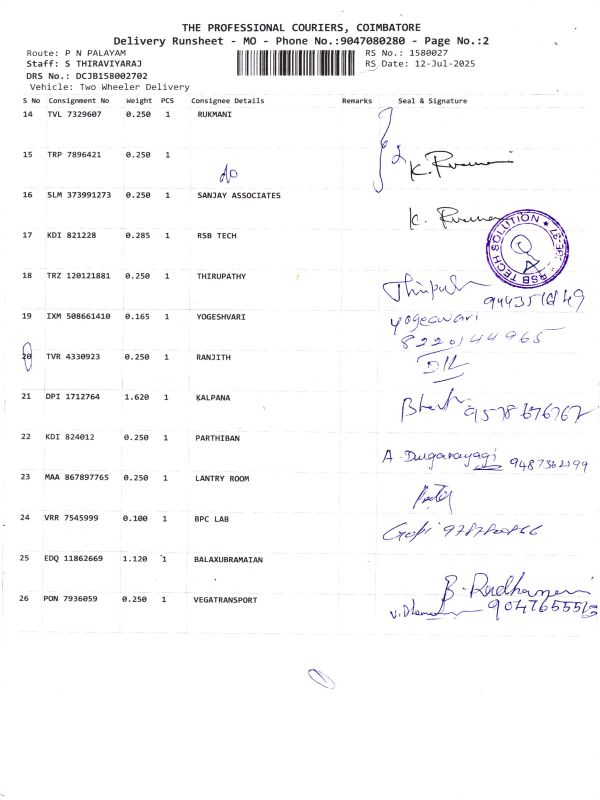 THE PROFESSIONAL COURIERS, COIMBATORE
Delivery Runsheet - MO - Phone No.:9047080280 - Page No.:2
Route: P N PALAYAM RS No.: 1580027
Staff: S THIRAVIYARAJ RS Date: 12-Jul-2025
DRS No.: DCJB158002702
Vehicle: Two Wheeler Delivery
S No Consignment No Weight PCS Consignee Details Remarks Seal & Signature
14 TVL 7329607 0.250 1 RUKMANI
15 TRP 7896421 0.250 1
do
16 SLM 373991273 0.250 1 SANJAY ASSOCIATES
17 KDI 821228 0.285 1 RSB TECH
RSB TECH SOLUTION
18 TRZ 120121881 0.250 1 THIRUPATHY
19 IXM 508661410 0.165 1 YOGESHVARI
Yogeswari
8220144965
20 TVR 4330923 0.250 1 RANJITH
21 DPI 1712764 1.620 1 KALPANA
9578676767
22 KDI 824012 0.250 1 PARTHIBAN
A. Durganayagi
23 MAA 867897765 0.250 1 LANTRY ROOM
24 VRR 7545999 0.100 1 BPC LAB
Gopi
25 EDQ 11862669 1.120 1 BALAXUBRAMAIAN
26 PON 7936059 0.250 1 VEGATRANSPORT